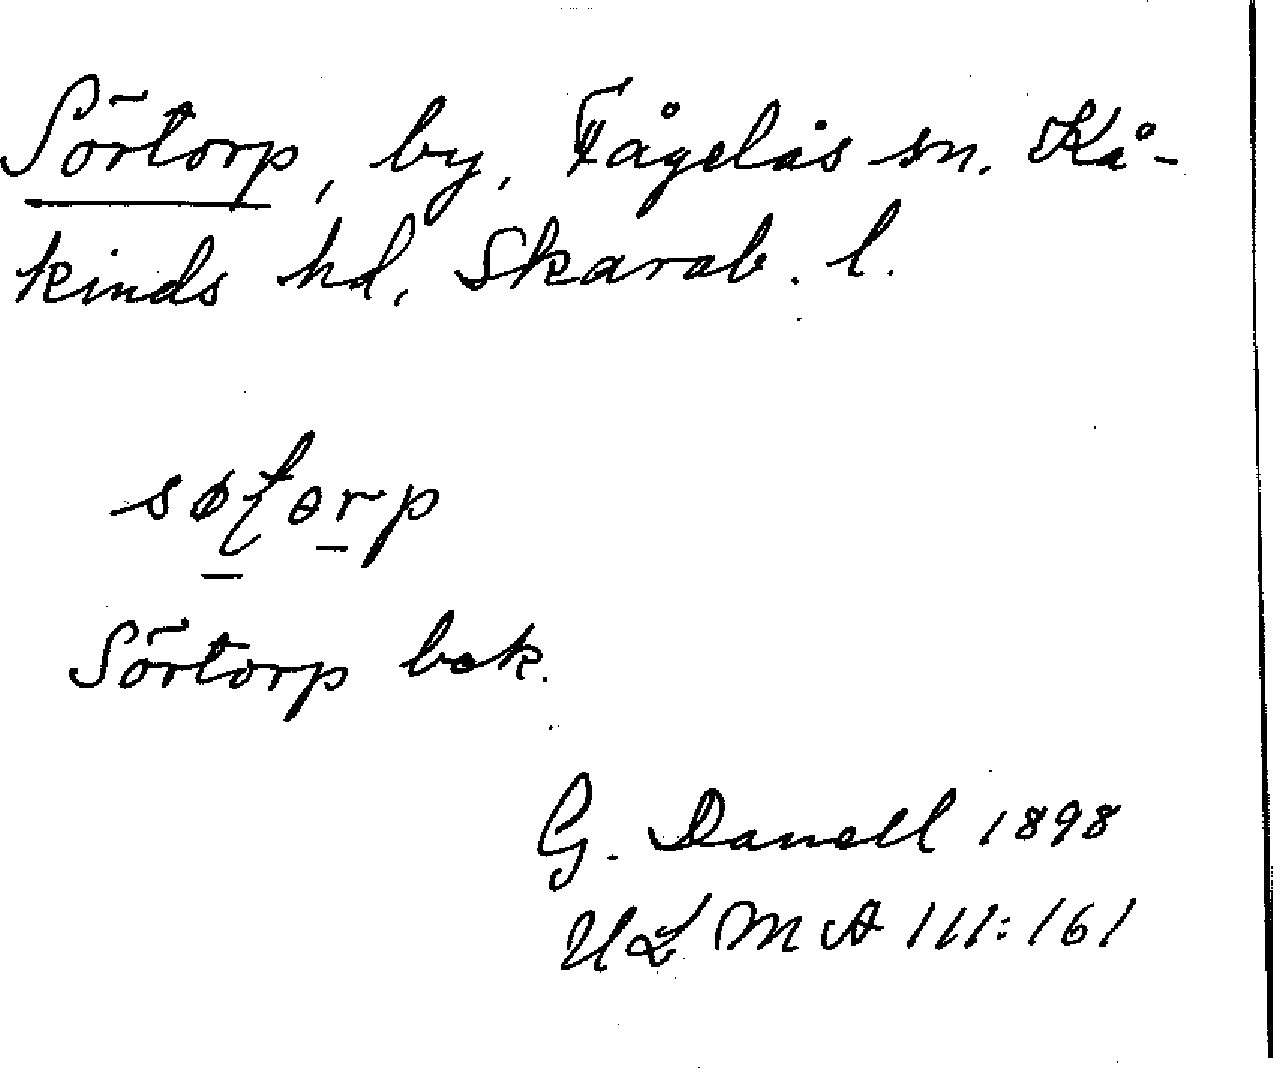 Sörtorp, by, Fågelås sn. Kå-
kinds hd, Skarab. l.
Sörtorp bok.
G. Danell 1898
ULMA 111:161